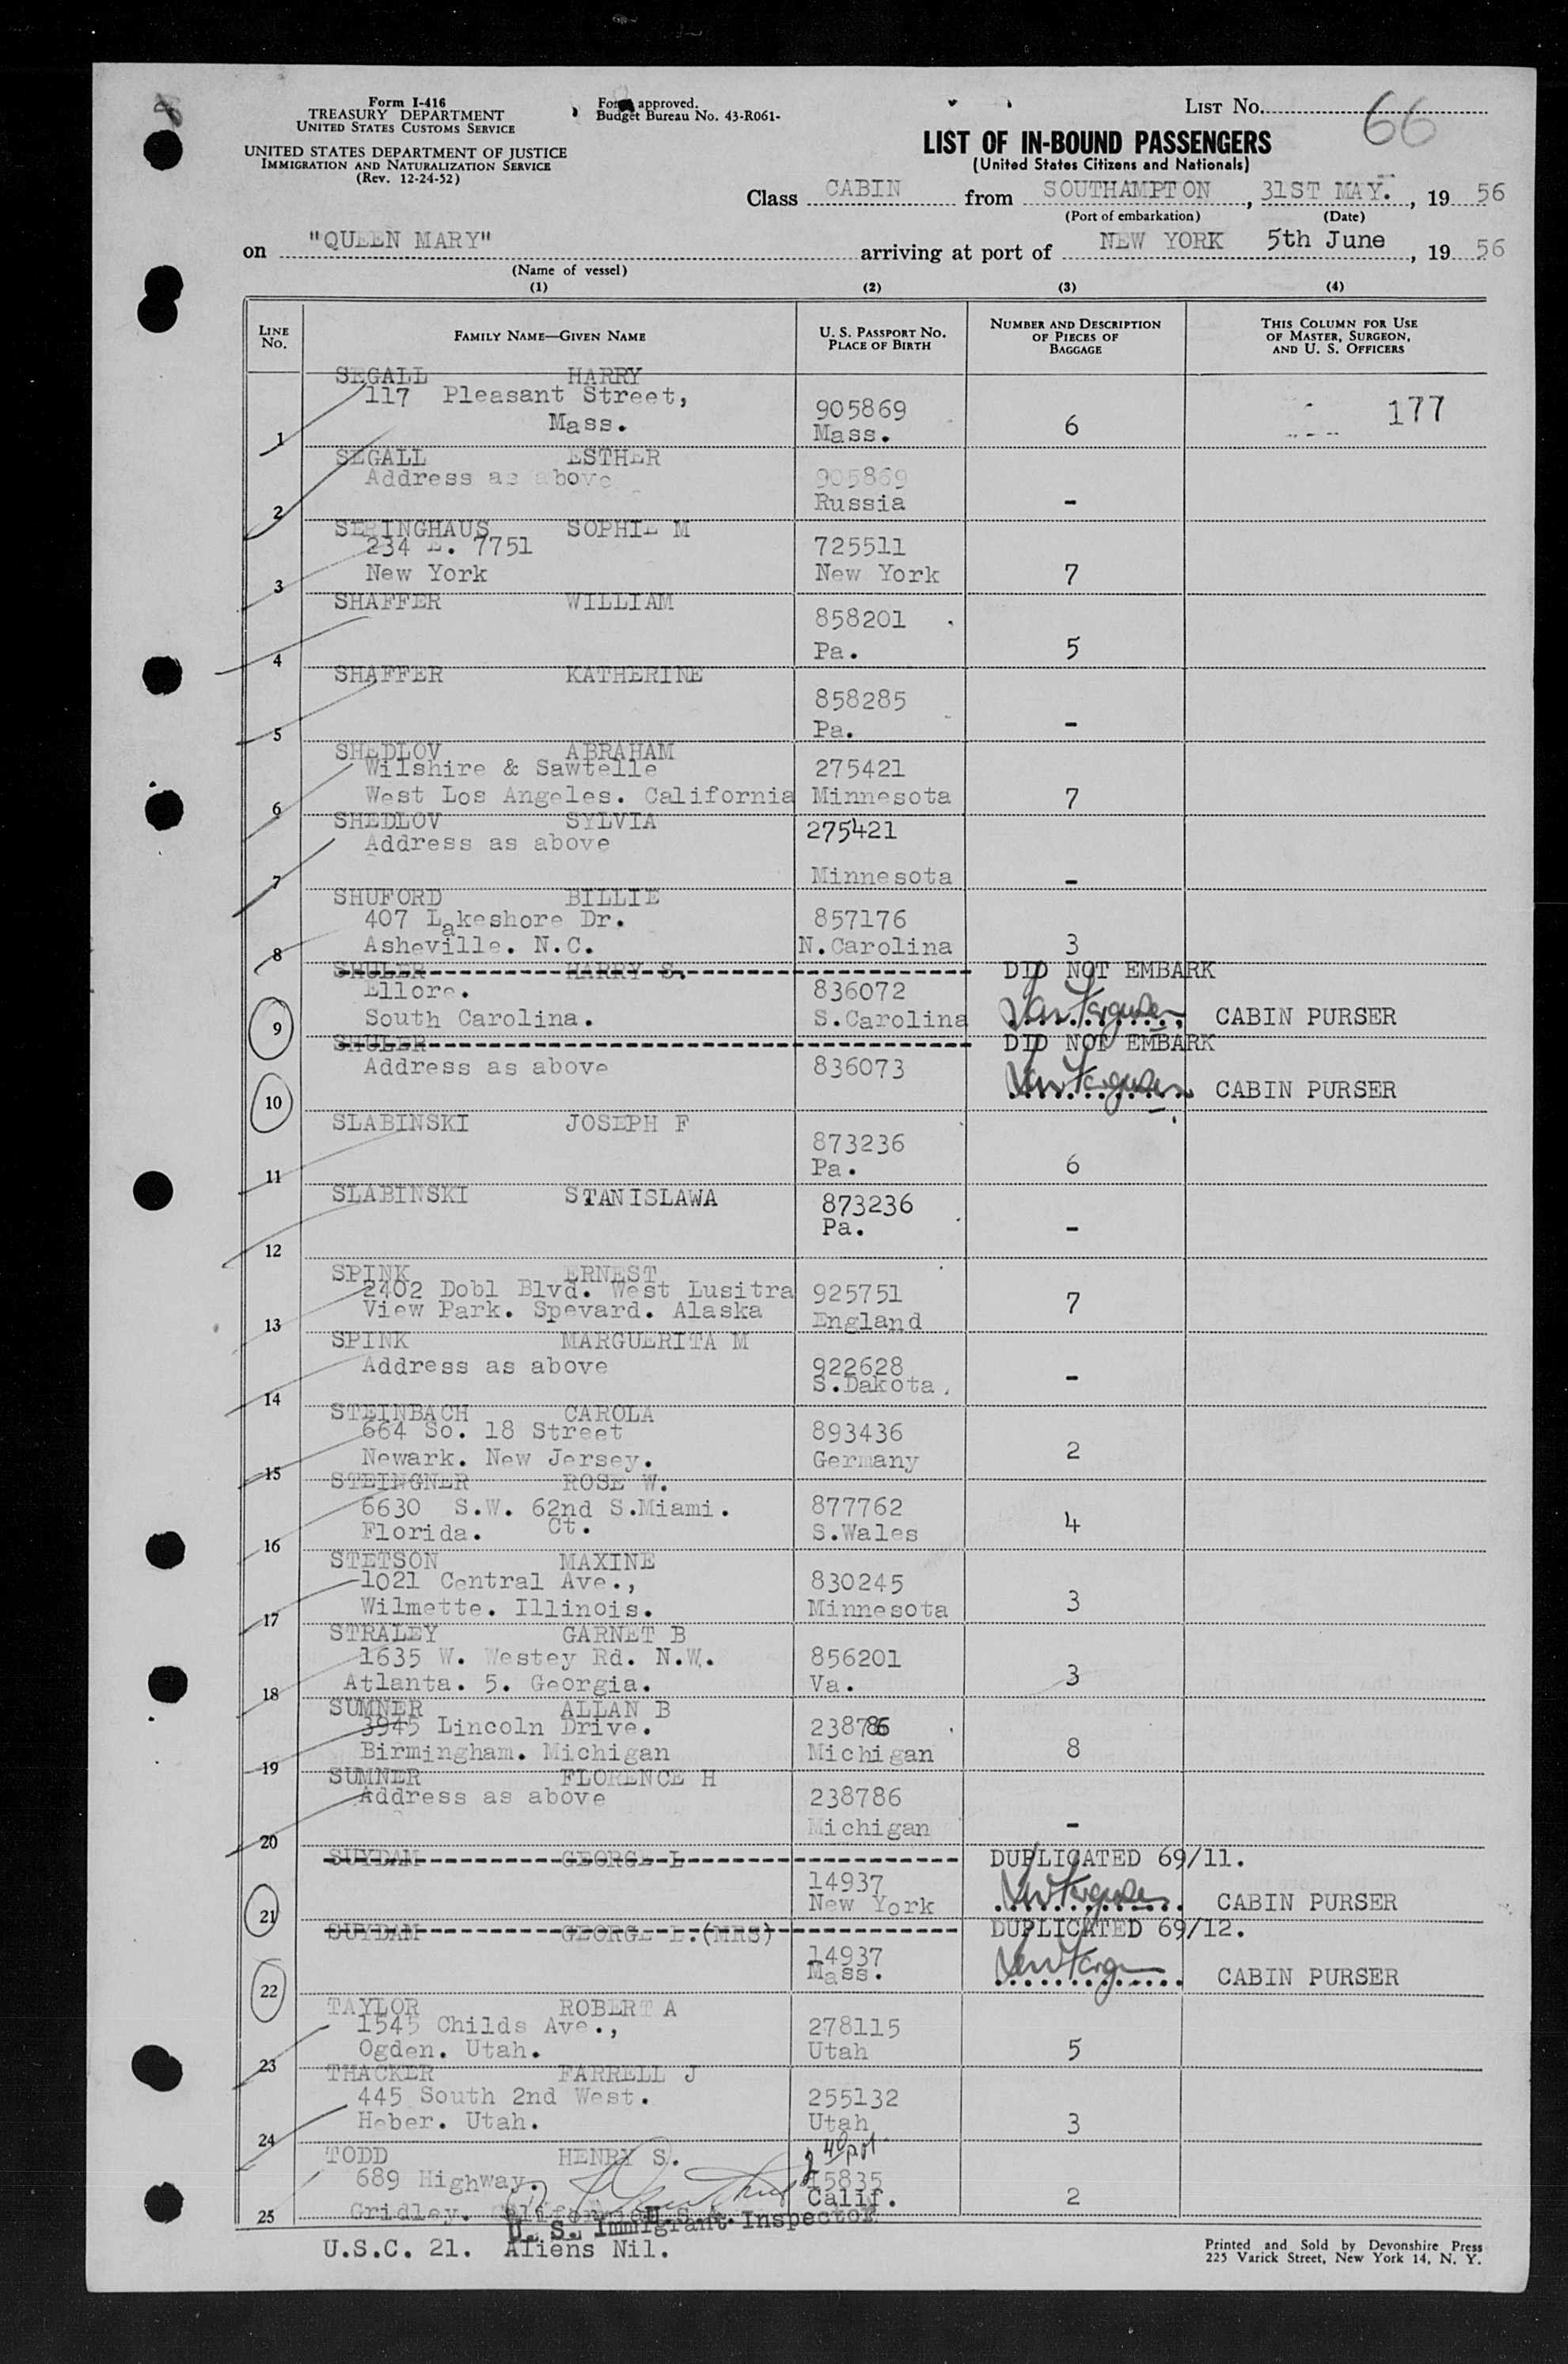 Form I-416
TREASURY DEPARTMENT
UNITED STATES CUSTOMS SERVICE
UNITED STATES DEPARTMENT OF JUSTICE
IMMIGRATION AND NATURALIZATION SERVICE
(Rev. 12-24-52)
Form approved.
Budget Bureau No. 43-R061-
LIST No. 66
LIST OF IN-BOUND PASSENGERS
(United States Citizens and Nationals)
Class CABIN from SOUTHAMPTON, 31ST MAY., 19 56
(Port of embarkation) (Date)
on "QUEEN MARY" arriving at port of NEW YORK 5th June, 19 56
(Name of vessel)
(1) (2) (3) (4)
LINE No. FAMILY NAME—GIVEN NAME U. S. PASSPORT NO. PLACE OF BIRTH NUMBER AND DESCRIPTION OF PIECES OF BAGGAGE THIS COLUMN FOR USE OF MASTER, SURGEON, AND U. S. OFFICERS
SEGALL HARRY
117 Pleasant Street, 905869 177
1 Mass. Mass. 6
SEGALL ESTHER
Address as above 905869
2 Russia -
SERINGHAUS SOPHIE M
234 E. 7751 725511
3 New York New York 7
SHAFFER WILLIAM
858201
4 Pa. 5
SHAFFER KATHERINE
858285
5 Pa. -
SHEDLOV ABRAHAM
Wilshire & Sawtelle 275421
6 West Los Angeles. California Minnesota 7
SHEDLOV SYLVIA 275421
Address as above
7 Minnesota -
SHUFORD BILLIE
407 Lakeshore Dr. 857176
8 Asheville. N.C. N.Carolina 3
SHULER HARRY S. DID NOT EMBARK
Ellore. 836072
9 South Carolina. S.Carolina CABIN PURSER
SHULER DID NOT EMBARK
Address as above 836073 CABIN PURSER
10
SLABINSKI JOSEPH F
873236
11 Pa. 6
SLABINSKI STANISLAWA 873236
Pa. -
12
SPINK ERNEST
2402 Dobl Blvd. West Lusitra 925751
13 View Park. Spevard. Alaska England 7
SPINK MARGUERITA M
Address as above 922628
14 S.Dakota. -
STEINBACH CAROLA
664 So. 18 Street 893436
15 Newark. New Jersey. Germany 2
STEINGNER ROSE W.
6630 S.W. 62nd S.Miami. 877762
16 Florida. Ct. S.Wales 4
STETSON MAXINE
1021 Central Ave., 830245
17 Wilmette. Illinois. Minnesota 3
STRALEY GARNET B
1635 W. Westey Rd. N.W. 856201
18 Atlanta. 5. Georgia. Va. 3
SUMNER ALLAN B
3945 Lincoln Drive. 238786
19 Birmingham. Michigan Michigan 8
SUMNER FLORENCE H
Address as above 238786
20 Michigan -
SUYDAM GEORGE L DUPLICATED 69/11.
14937
21 New York CABIN PURSER
SUYDAM GEORGE L.(MRS) DUPLICATED 69/12.
14937
22 Mass. CABIN PURSER
TAYLOR ROBERT A
1545 Childs Ave., 278115
23 Ogden. Utah. Utah 5
THACKER FARRELL J
445 South 2nd West. 255132
24 Heber. Utah. Utah 3
TODD HENRY S.
689 Highway. 15835
25 Gridley. California U.S.A. Calif. 2
U. S. Immigrant Inspector
U.S.C. 21. Aliens Nil.
Printed and Sold by Devonshire Press
225 Varick Street, New York 14, N. Y.